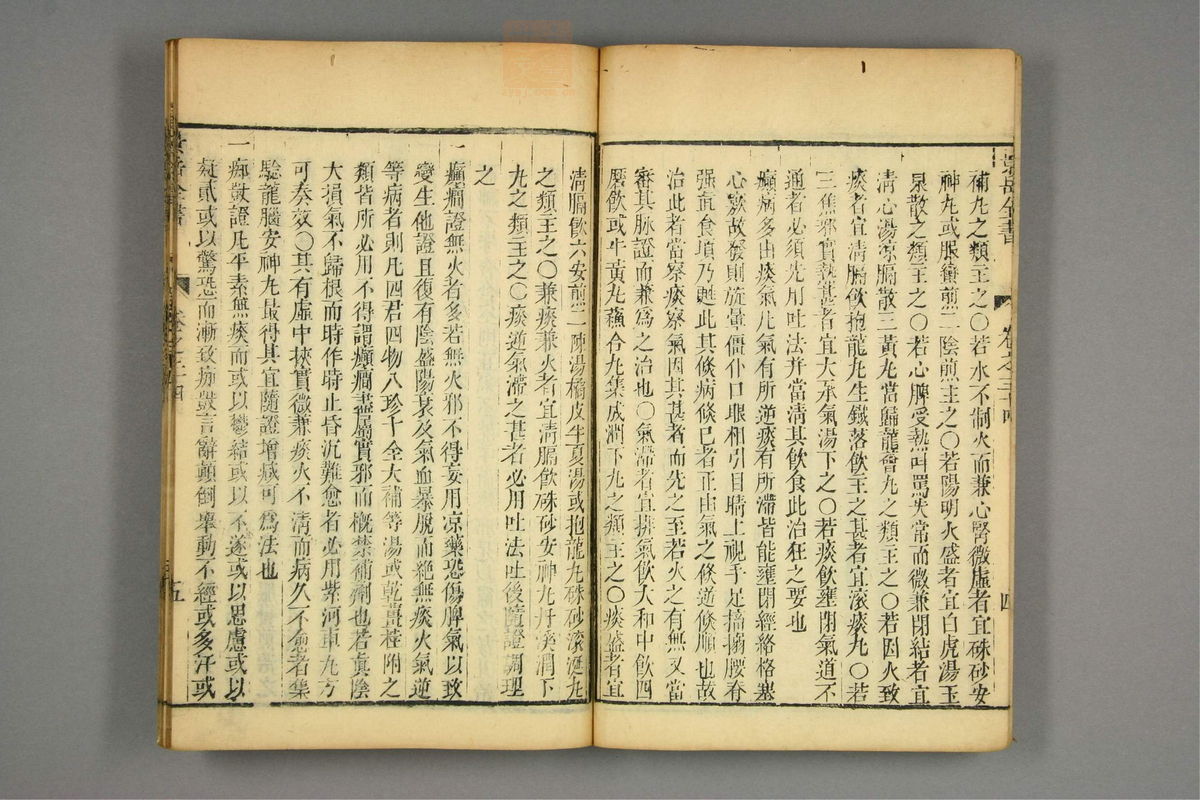 景岳全書 卷之三十四 四
補丸之類主之〇若水不制火而兼心腎微虛者宜硃砂安
神丸或服蠻煎二陰煎主之〇若陽明火盛者宜白虎湯玉
泉散之類主之〇若心脾受熱叫罵失常而微兼閉結者宜
清心湯涼膈散三黃丸當歸龍薈丸之類主之〇若因火致
痰者宜清膈飲抱龍丸生鐵落飲主之甚者宜滾痰丸〇若
三焦邪實熱甚者宜大承氣湯下之〇若痰飲壅閉氣道不
通者必須先用吐法并當清其飲食此治狂之要也
癲病多由痰氣凡氣有所逆痰有所滯皆能壅閉經絡格塞
心竅故發則旋暈僵仆口眼相引目睛上視手足搐搦腰脊
强直食頃乃甦此其倏病倏已者正由氣之倏逆倏順也故
治此者當察痰察氣因其甚者而先之至若火之有無又當
審其脉證而兼爲之治也〇氣滯者宜排氣飲大和中飲四
磨飲或牛黃丸蘓合丸集成潤下丸之類主之〇痰盛者宜
清膈飲六安煎二陳湯橘皮半夏湯或抱龍丸硃砂滚涎丸
之類主之〇兼痰兼火者宜清膈飲硃砂安神丸丹溪潤下
丸之類主之〇痰逆氣滯之甚者必用吐法吐後隨證調理
之
一癲癎證無火者多若無火邪不得妄用凉藥恐傷脾氣以致
變生他證且復有陰盛陽衰及氣血暴脱而絶無痰火氣逆
等病者則凡四君四物八珍十全大補等湯或乾薑桂附之
類皆所必用不得謂癲癎盡屬實邪而概禁補劑也若眞陰
大損氣不歸根而時作時止昏沉難愈者必用紫河車丸方
可奏效〇其有虛中挾實微兼痰火不清而病久不愈者集
驗龍腦安神丸最得其宜隨證增減可爲法也
一癡獃證凡平素無痰而或以鬱結或以不遂或以思慮或以
疑貳或以驚恐而漸致癡獃言辭顛倒舉動不經或多汗或
景岳全書 卷之三十四 五